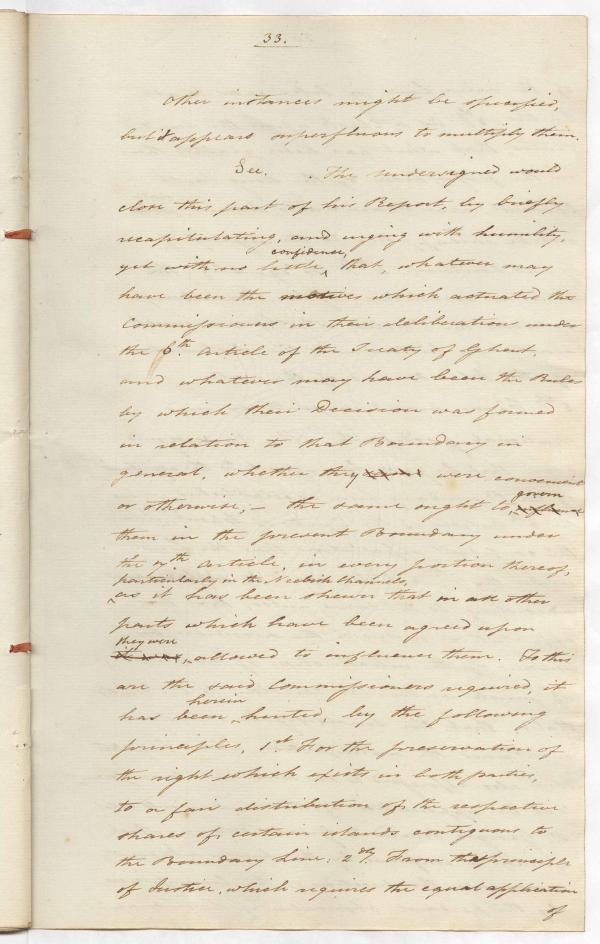 33.
Other instances might be specified,
but it appears superfluous to multiply them.
Sec. . The undersigned would
close this part of his Report, by briefly
recapitulating, and urging with humility,
confidence,
yet with no little, that, whatever may
have been the motives which actuated the
Commissioners in their deliberation under
the 6th. article of the Treaty of Ghent,
and whatever may have been the Rules
by which their Decision was formed
in relation to that Boundary in
general, whether they were convenient
govern
or otherwise, – the same ought to
them in the present Boundary under
the 7th. article, in every portion thereof,
particularly in the Neebish Channels,
as it has been shewn that in all other
parts which have been agreed upon
they were
it was allowed to influence them. To this
are the said Commissioners required, it
herein
has been hinted, by the following
principles, 1.st For the preservation of
the right which exists in both parties,
to a fair distribution of the respective
shares of certain islands contiguous to
the Boundary Line: 2dly. From the principle
of Justice, which requires the equal application
of